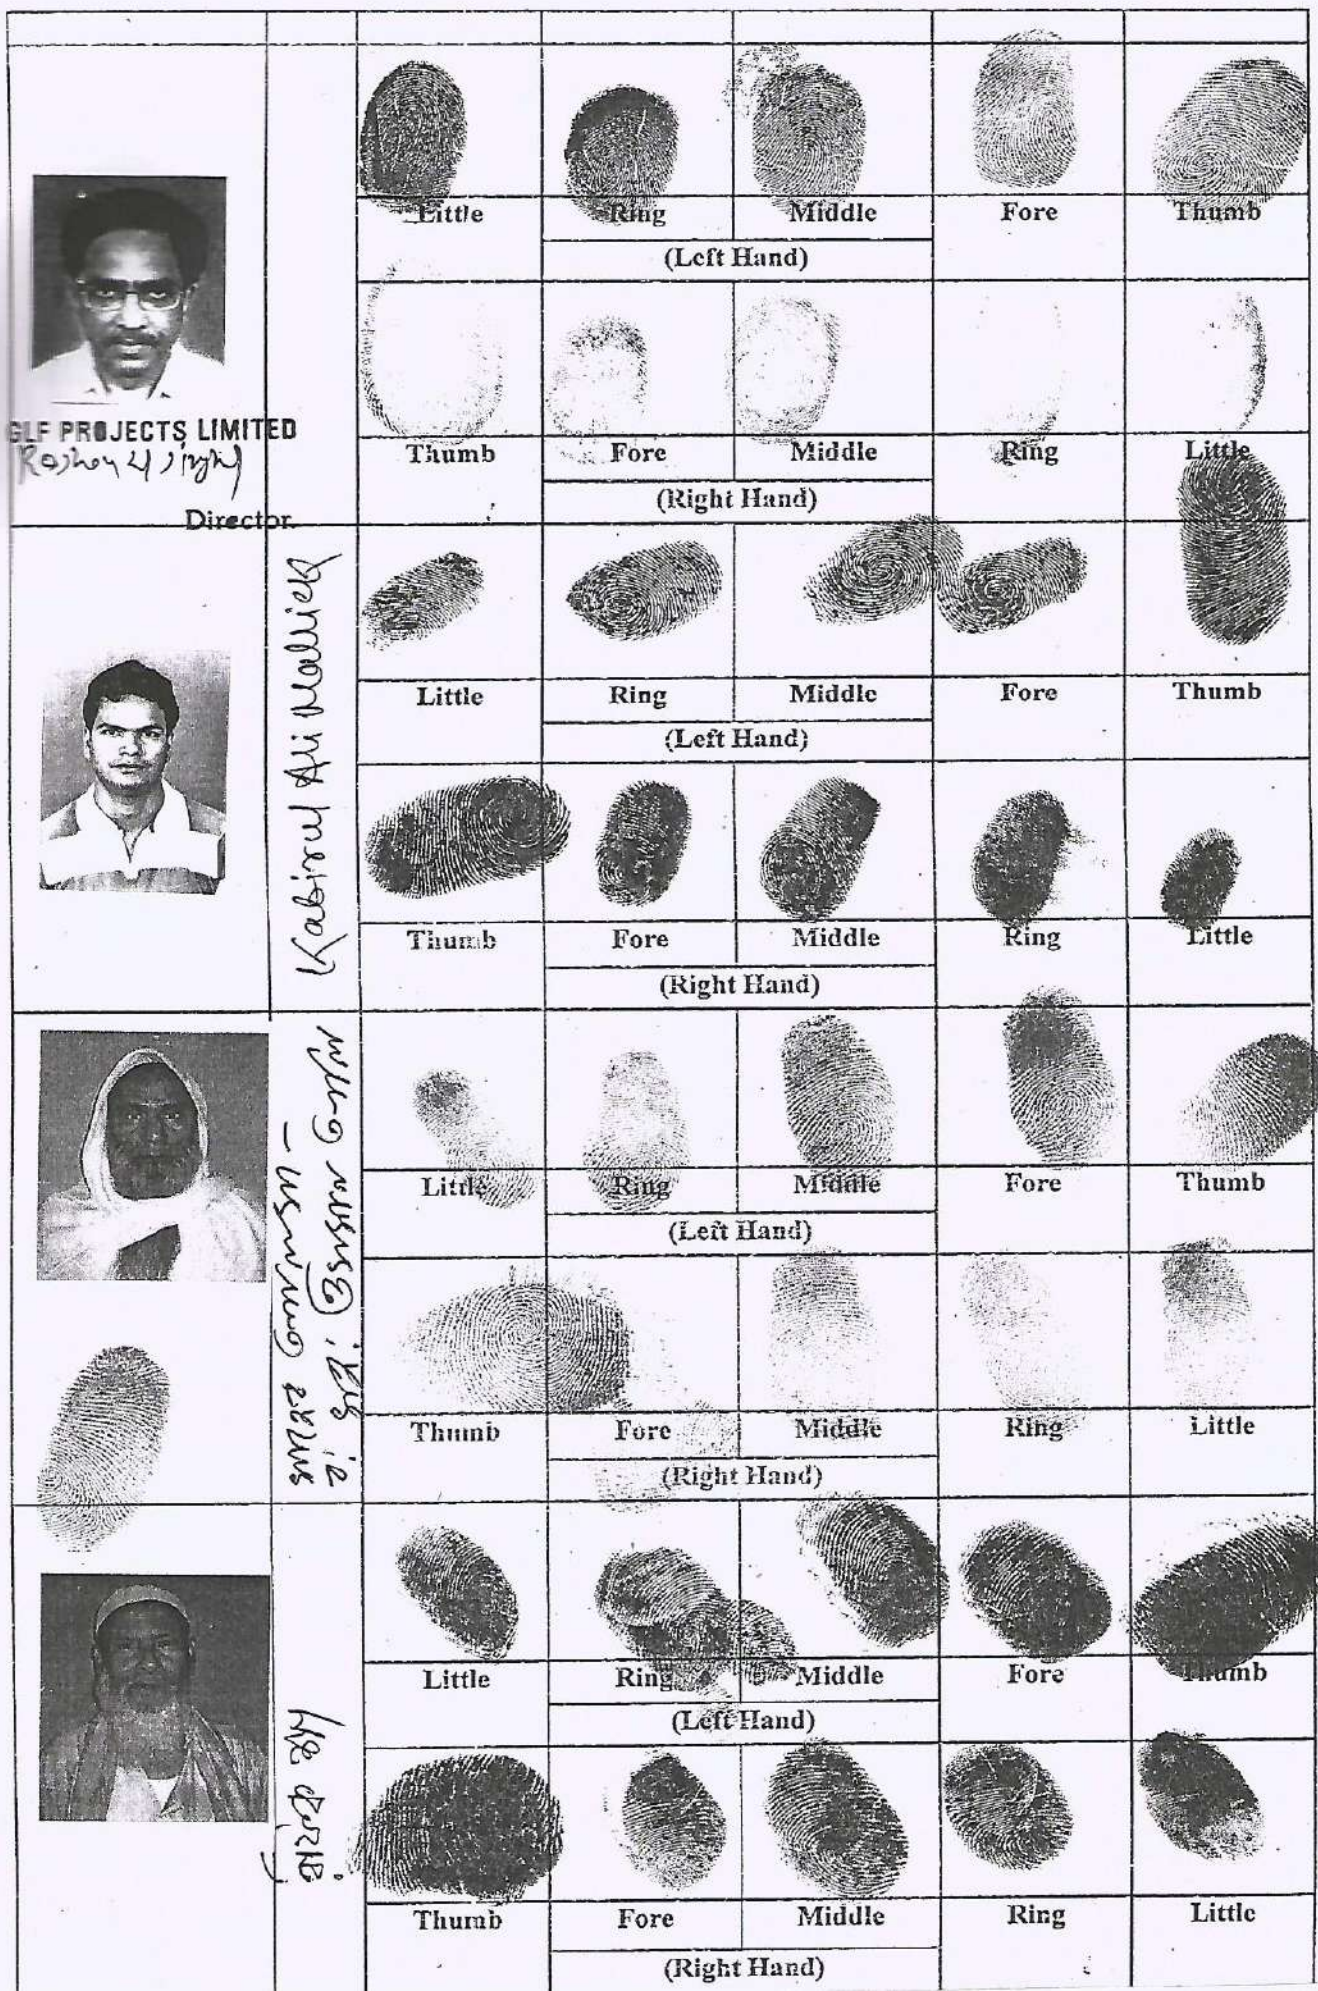 Little Ring Middle Fore Thumb
(Left Hand)
GLF PROJECTS LIMITED
Director
Thumb Fore Middle Ring Little
(Right Hand)
Kabirul Ali Mallick
Little Ring Middle Fore Thumb
(Left Hand)
Thumb Fore Middle Ring Little
(Right Hand)
Little Ring Middle Fore Thumb
(Left Hand)
Thumb Fore Middle Ring Little
(Right Hand)
Little Ring Middle Fore Thumb
(Left Hand)
Thumb Fore Middle Ring Little
(Right Hand)